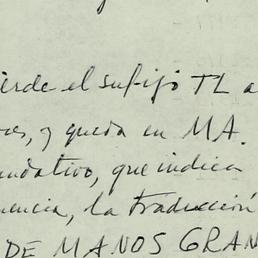 ierde el sufijo TL a
es, y queda en MA.
undativo, que indica
encia, la traducción
DE MANOS GRAN